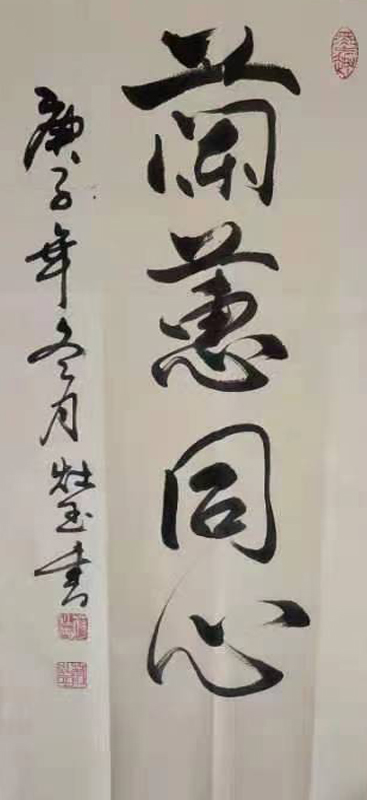 蘭蕙同心
庚子年冬月 玉書